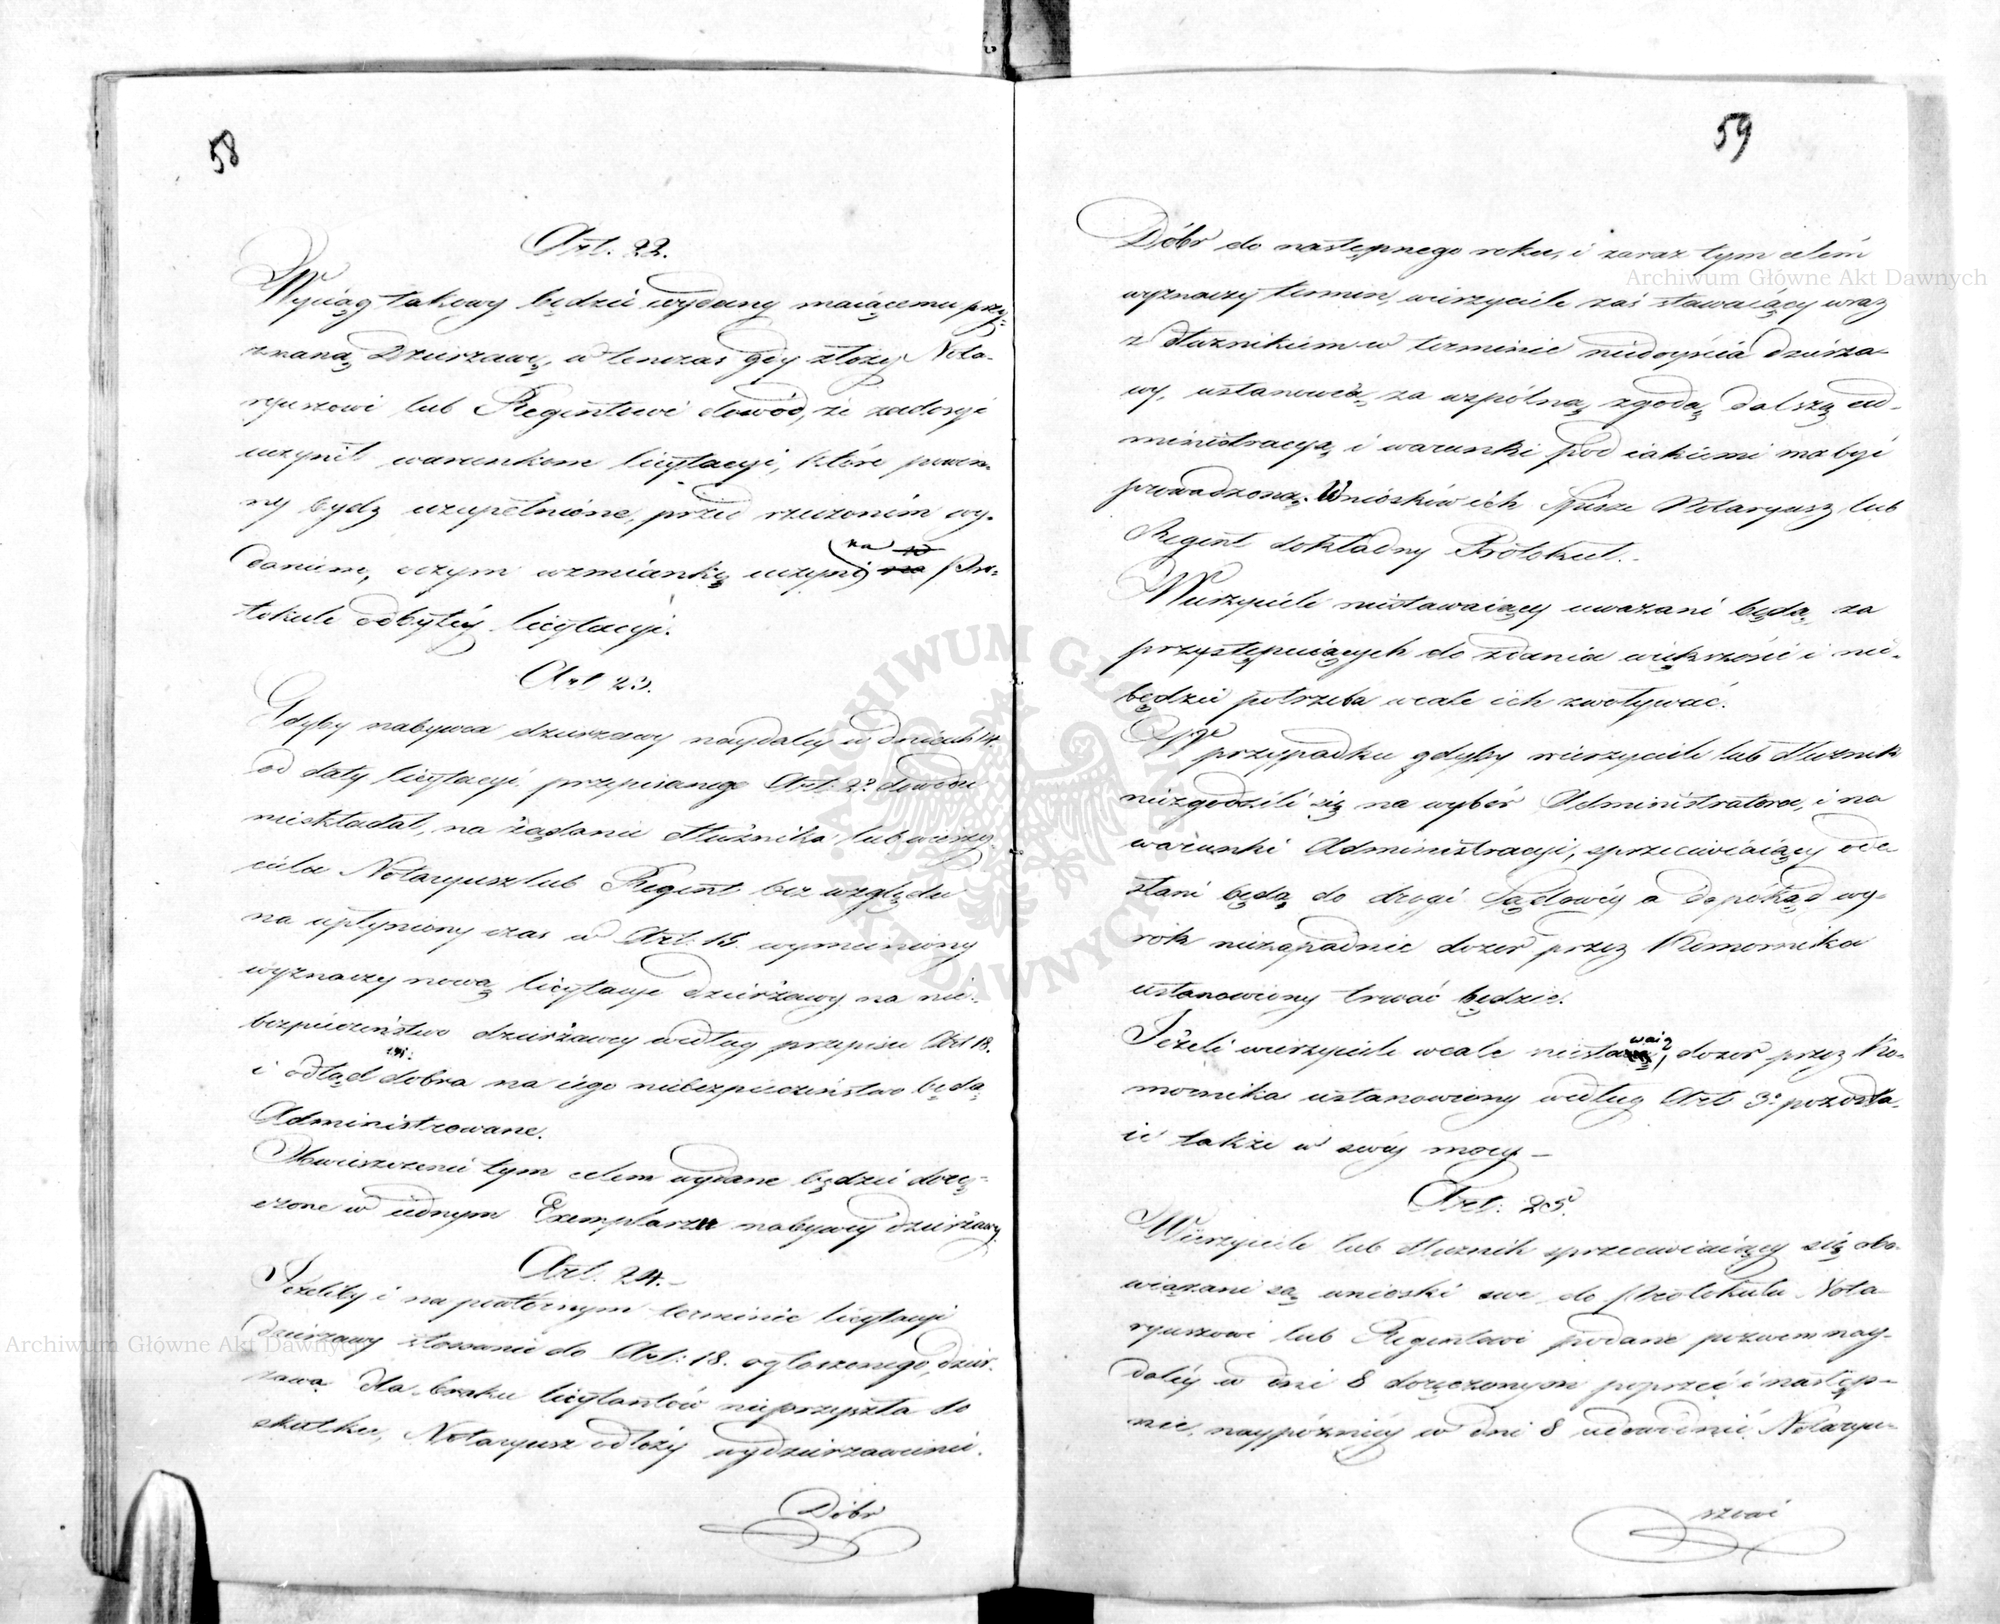 58
Art. 22.
Wyciąg takowy będzie wydany maiącemu przy-
znaną Dzierzawę, w tenczas gdy złoży Nota-
ryuszowi lub Regentowi dowód, że zadosyć
uczynił warunkom licytacyi, które powin-
ny bydź uzupełnione, przed rzeczonem wy-
daniem, o czym wzmiankę uczyni na Pro-
tokule odbytéy licytacyi.
Art 23.
Gdyby nabywca dzierzawy naydaléy w dniach 14.
od daty licytacyi przepisanego Art. 22 dowodu
nieskładał, na żądanie dłużnika lub wierzy-
ciela Notaryusz lub Regent bez względu
na upłyniony czas w Art: 15. wymieniony
wyznaczy nową licytacye dzierżawy na nie-
bezpieczeństwo dzierżawcy według przepisu Art 18.
i odtąd dobra na iego niebezpieczeństwo będą
Administrowane.
Obwieszczenie tym celem wydane będzie dorę-
czone w iednym Exemplarzu nabywcy dzierżawy.
Art. 24.
Jeżeliby i na powtórnym terminie licytacyi
Dzierzawy stosownie do Art: 18. ogłoszonego, dzier-
zawa dla braku licytantów nieprzyszła do
skutku, Notaryusz odłoży wydzierzawienie.
Dóbr
59
Dóbr do następnego roku, i zaraz tym celem
wyznaczy termin, wierzyciele zaś stawaiący wraz
z dłużnikiem w terminie niedoyścia dzierza-
wy, ustanowią za wspólną zgodą dalszą ad-
ministracyą i warunki pod iakiemi ma być
prowadzona. Wniosków ich spisze Notaryusz lub
Regent dokładny Protokuł.
Wierzyciele niestawaiący uważani będą za
przystępuiących do zdania większości i nie-
będzie potrzeba wcale ich zwoływać.
W przypadku gdyby wierzyciele lub dłużnik
niezgodzili się na wybór Administratora, i na
warunki Administracyi, sprzeciwiaiący ode-
słani będą do drogi Sądowéy a dopókąd wy-
rok niezapadnie dozór przez Komornika
ustanowiony trwać będzie.
Jeżeli wierzyciele wcale niestawaią, dozór przez Ko-
mornika ustanowiony według Art 3° pozosta-
ie także w swéy mocy –
Art: 25.
Wierzyciele lub dłużnik sprzeciwiaiący się obo-
wiązani są wnioski swe do Protokułu Nota-
ryuszowi lub Regentowi podane pozwem nay-
daléy w dni 8 doręczonym poprzeć i następ-
nie, naypóźniéy w dni 8 udowodnić Notaryu-
szowi
Archiwum Główne Akt Dawnych
Archiwum Główne Akt Dawnych
ARCHIWUM GŁÓWNE AKT DAWNYCH